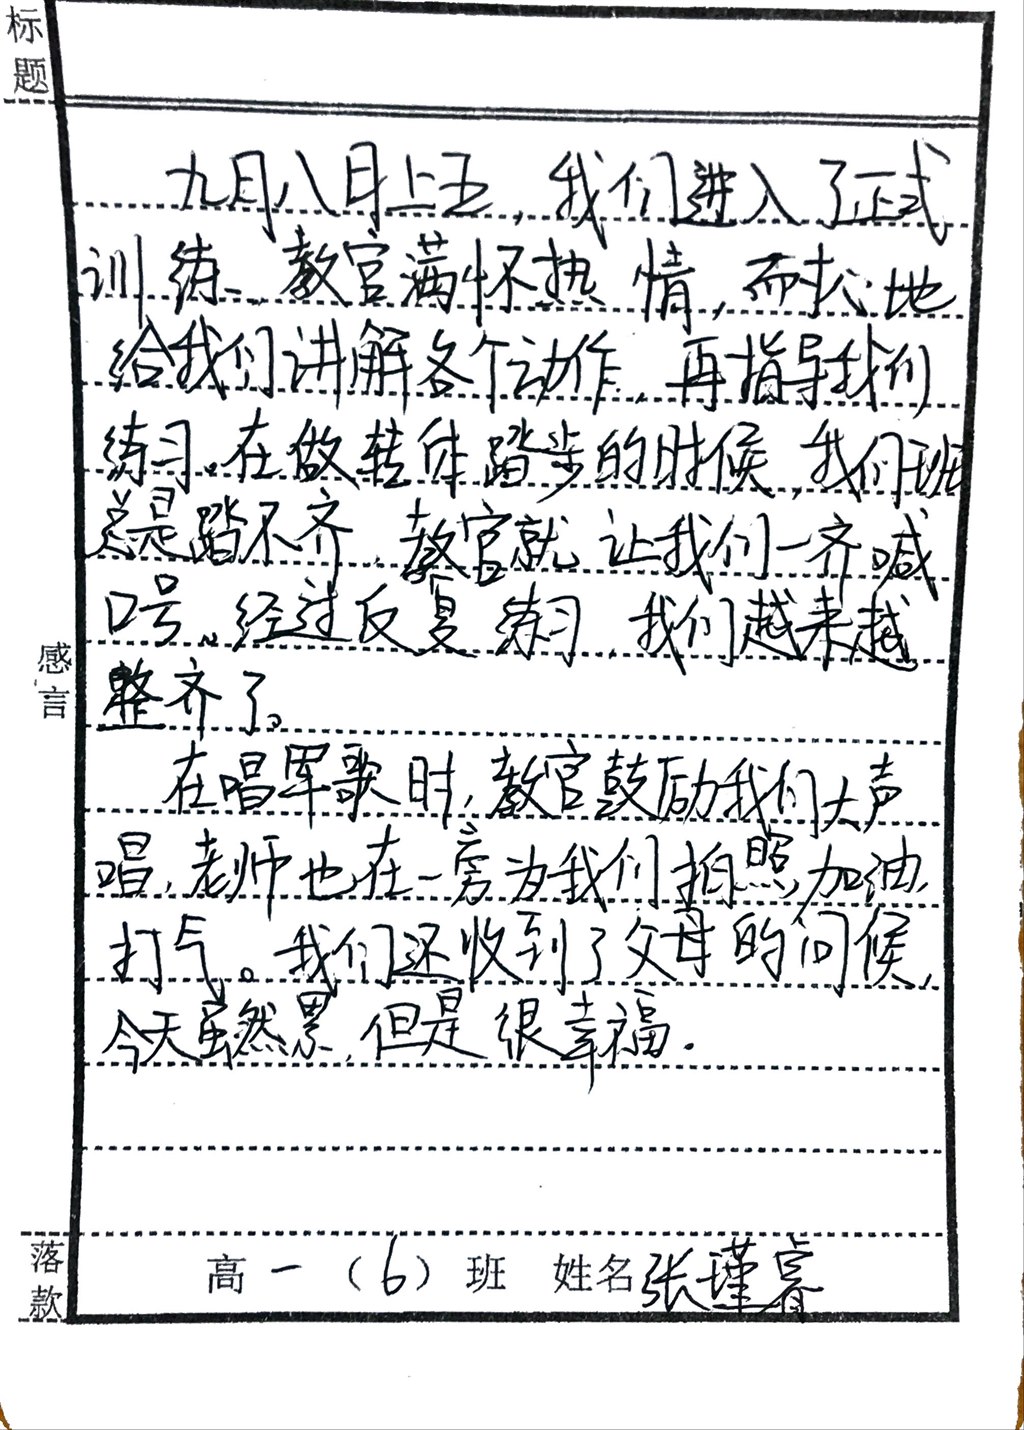 标题
九月八日上五,我们进入了正式
训练,教官满怀热情,而扒地
给我们讲解各个动作,再指导我们
练习。在做转体踏步的时候,我们班
总是踏不齐,教官就让我们一齐喊
口号。经过反复练习,我们越来越
整齐了。
在唱军歌时,教官鼓励我们大声
唱,老师也在一旁为我们拍照,加油,
打气。我们还收到了父母的问候,
今天虽然累,但是很幸福.
感言
落款
高一(6)班 姓名张瑾睿